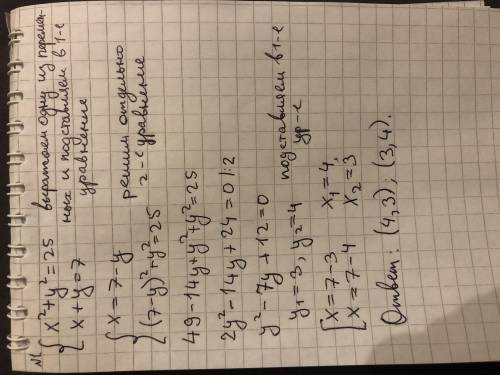 N1
{ x² + y² = 25
x + y = 7
выражаем одну из перемен-
ных и подставляем в 1-е
уравнение
{ x = 7 - y
(7-y)² + y² = 25
решим отдельно
2-е уравнение
49 - 14y + y² + y² = 25
2y² - 14y + 24 = 0 | :2
y² - 7y + 12 = 0
y₁ = 3, y₂ = 4
подставляем в 1-е
ур-е
[ x = 7 - 3
x = 7 - 4
x₁ = 4,
x₂ = 3
Ответ: (4,3); (3,4).